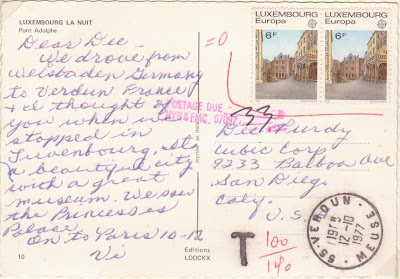 LUXEMBOURG LA NUIT
Pont Adolphe
Dear Dee –
We drove from
Weisbaden Germany
to Verdun France
& I thought of
you when we
stopped in
Luxenbourg. It's
a beautiful city
with a great
museum. We saw
the Princesses
Palace.
On to Paris 10-12
Vi
10
Editions
LOOCKX
LUXEMBOURG
Europa
6F
LUXEMBOURG
Europa
6F
=0
POSTAGE DUE
33
Dee Purdy
Cubic Corp
9233 Balboa Ave
San Diego
Caly.
U.S.
T
100
140
55-VERDUN MEUSE
12-10
1977